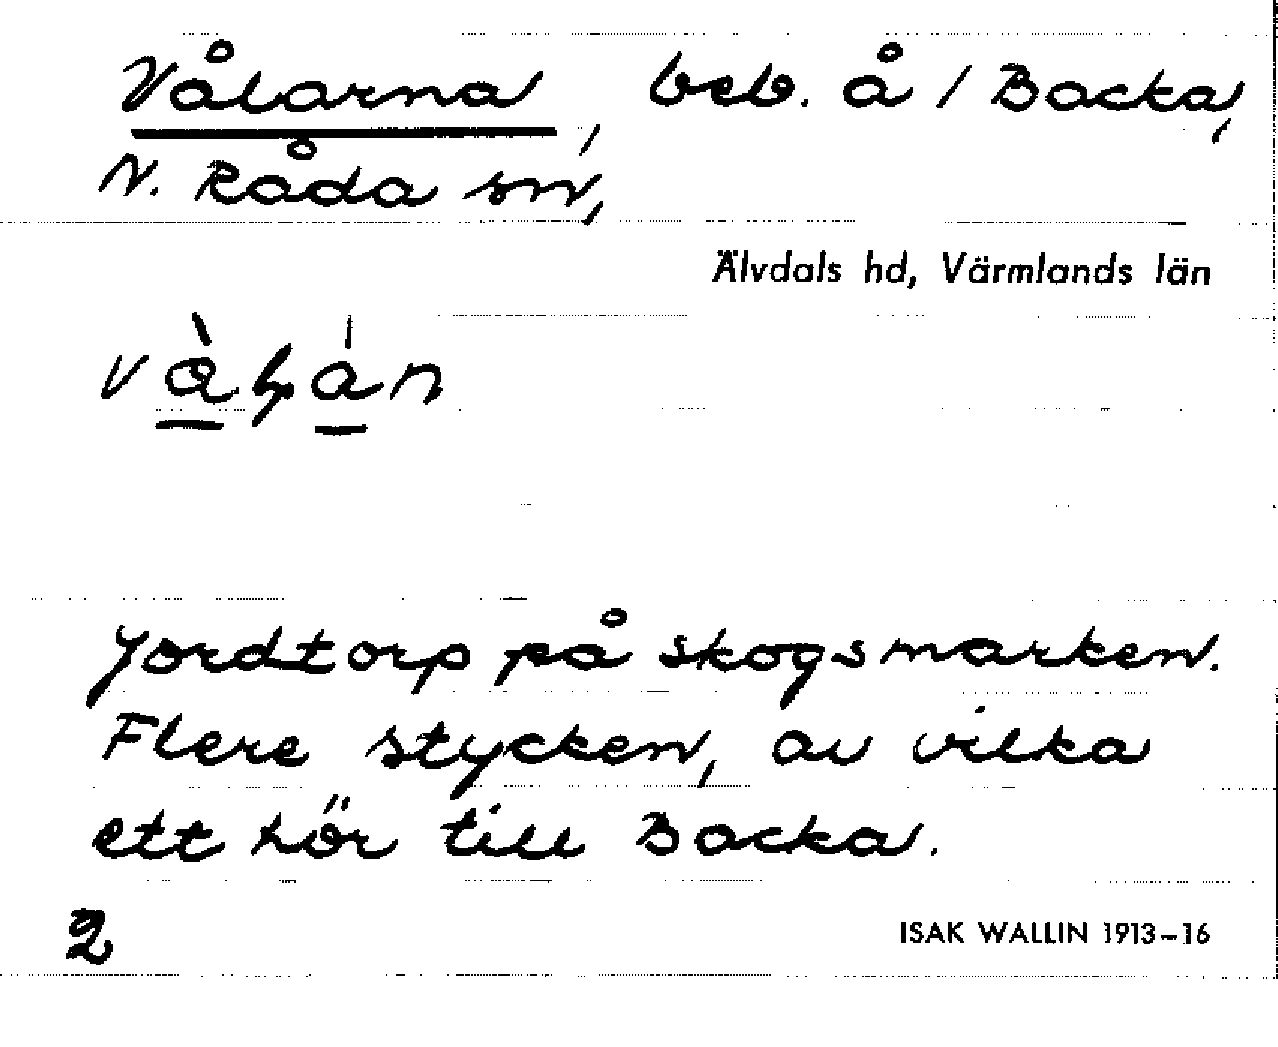 Vålarna, beb. å / Backa,
N. Råda sn,
Älvdals hd, Värmlands län
Jordtorp på skogsmarken.
Flere stycken, av vilka
ett hör till Backa.
2
ISAK WALLIN 1913–16